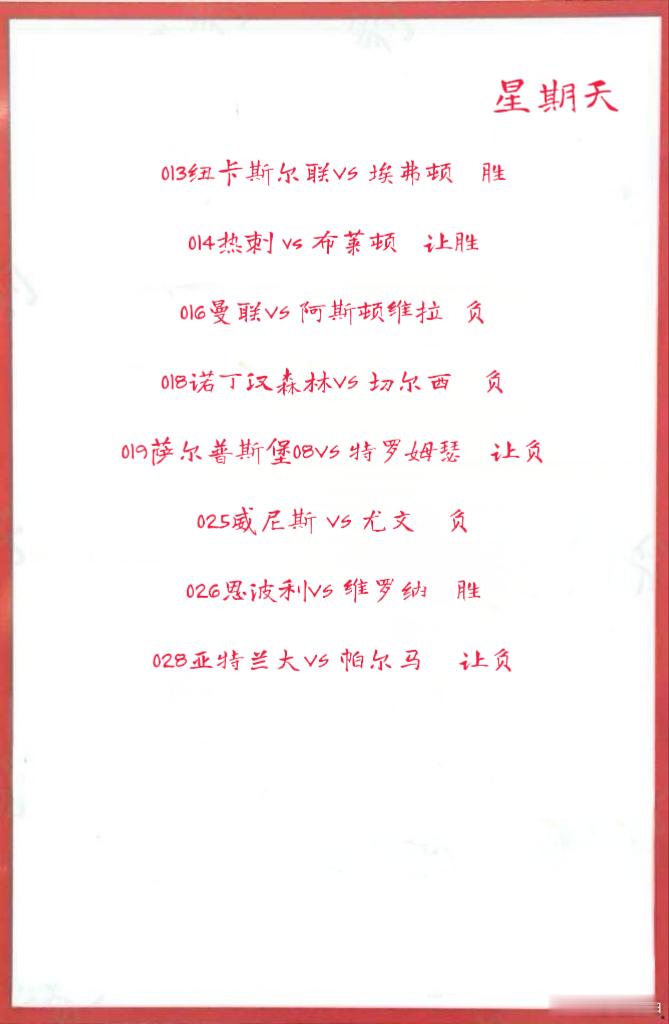 星期天
013纽卡斯尔联vs 埃弗顿 胜
014热刺 vs 布莱顿 让胜
016曼联vs 阿斯顿维拉 负
018诺丁汉森林vs 切尔西 负
019萨尔普斯堡08vs 特罗姆瑟 让负
025威尼斯 vs 尤文 负
026恩波利vs 维罗纳 胜
028亚特兰大vs 帕尔马 让负